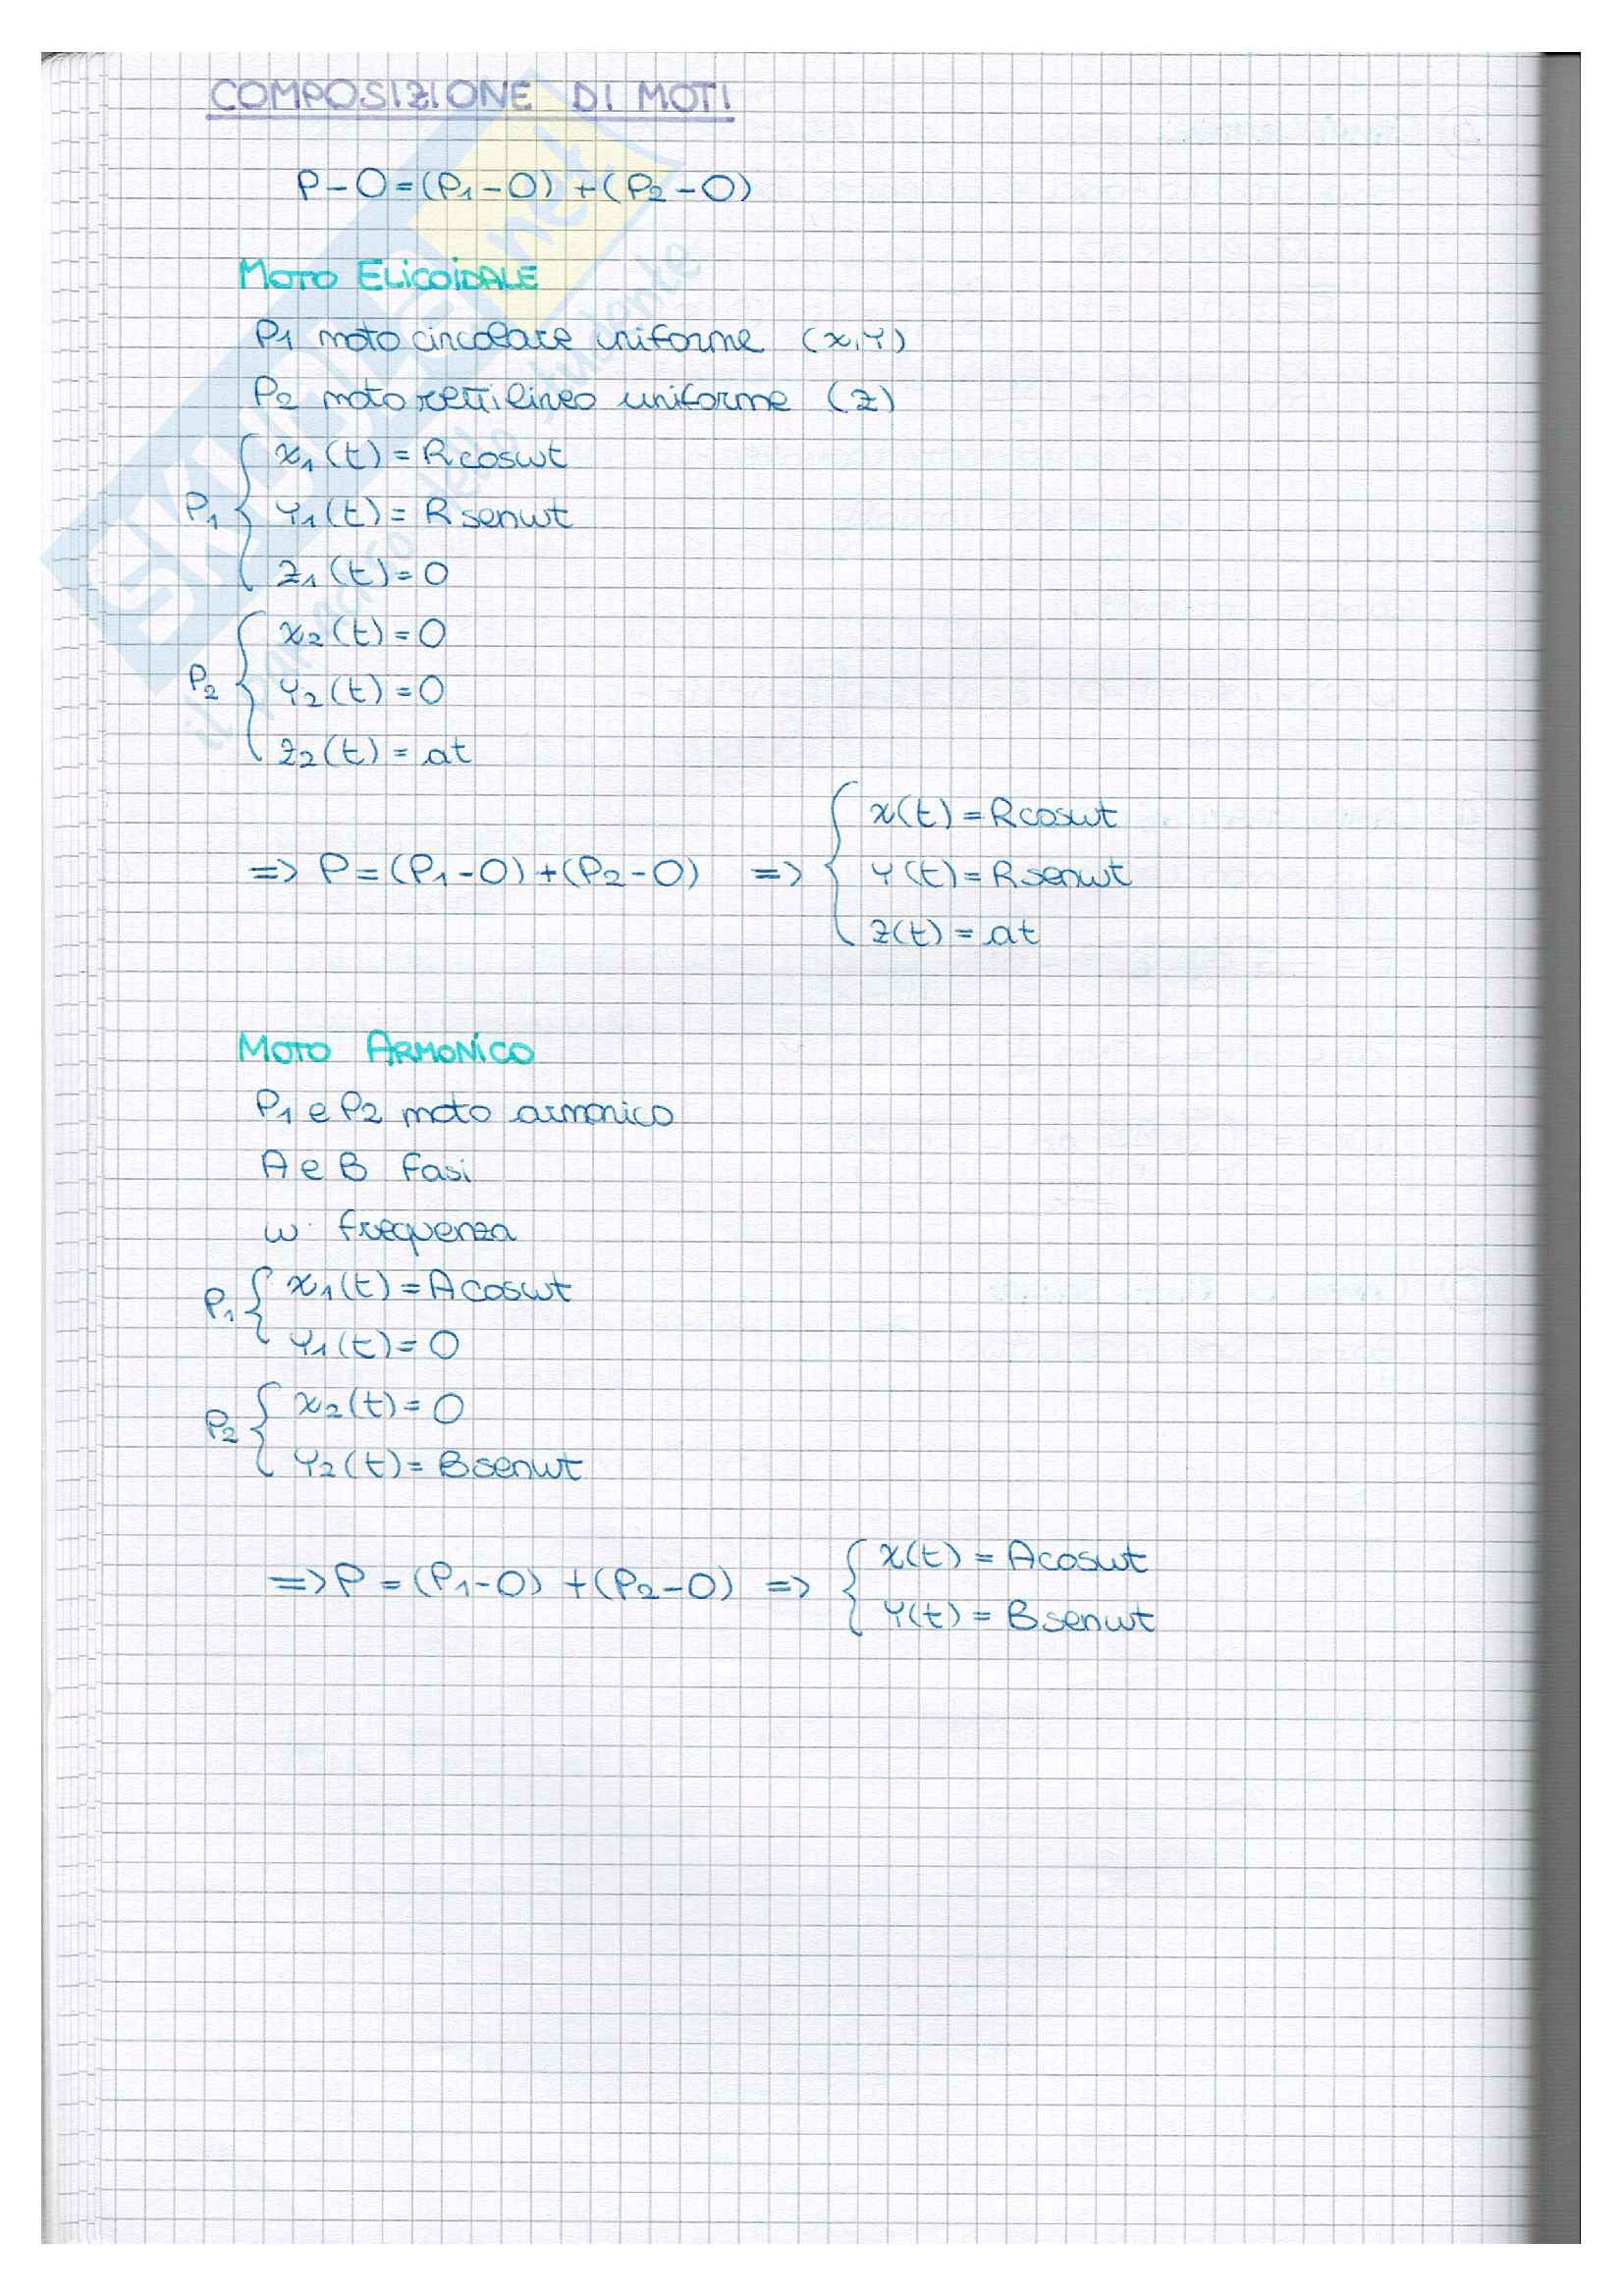 COMPOSIZIONE DI MOTI
P-O=(P1-O)+(P2-O)
MOTO ELICOIDALE
P1 moto circolare uniforme (x,y)
P2 moto rettilineo uniforme (z)
P1 { x1(t)=Rcosωt
y1(t)=Rsenωt
z1(t)=0
P2 { x2(t)=0
y2(t)=0
z2(t)=at
=> P=(P1-O)+(P2-O) => { x(t)=Rcosωt
y(t)=Rsenωt
z(t)=at
MOTO ARMONICO
P1 e P2 moto armonico
A e B fasi
ω frequenza
P1 { x1(t)=Acosωt
y1(t)=0
P2 { x2(t)=0
y2(t)=Bsenωt
=> P=(P1-O)+(P2-O) => { x(t)=Acosωt
y(t)=Bsenωt
SKUOLA.net